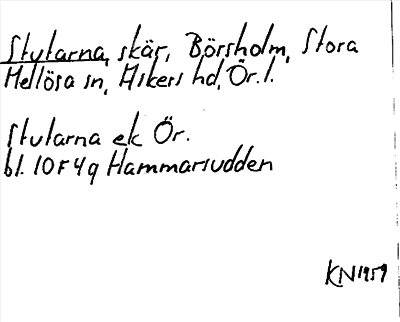 Stutarna, skär, Börsholm, Stora
Mellösa sn, Askers hd, Ör. l.
Stutarna ek Ör.
bl. 10F4g Hammarsudden
KN1959